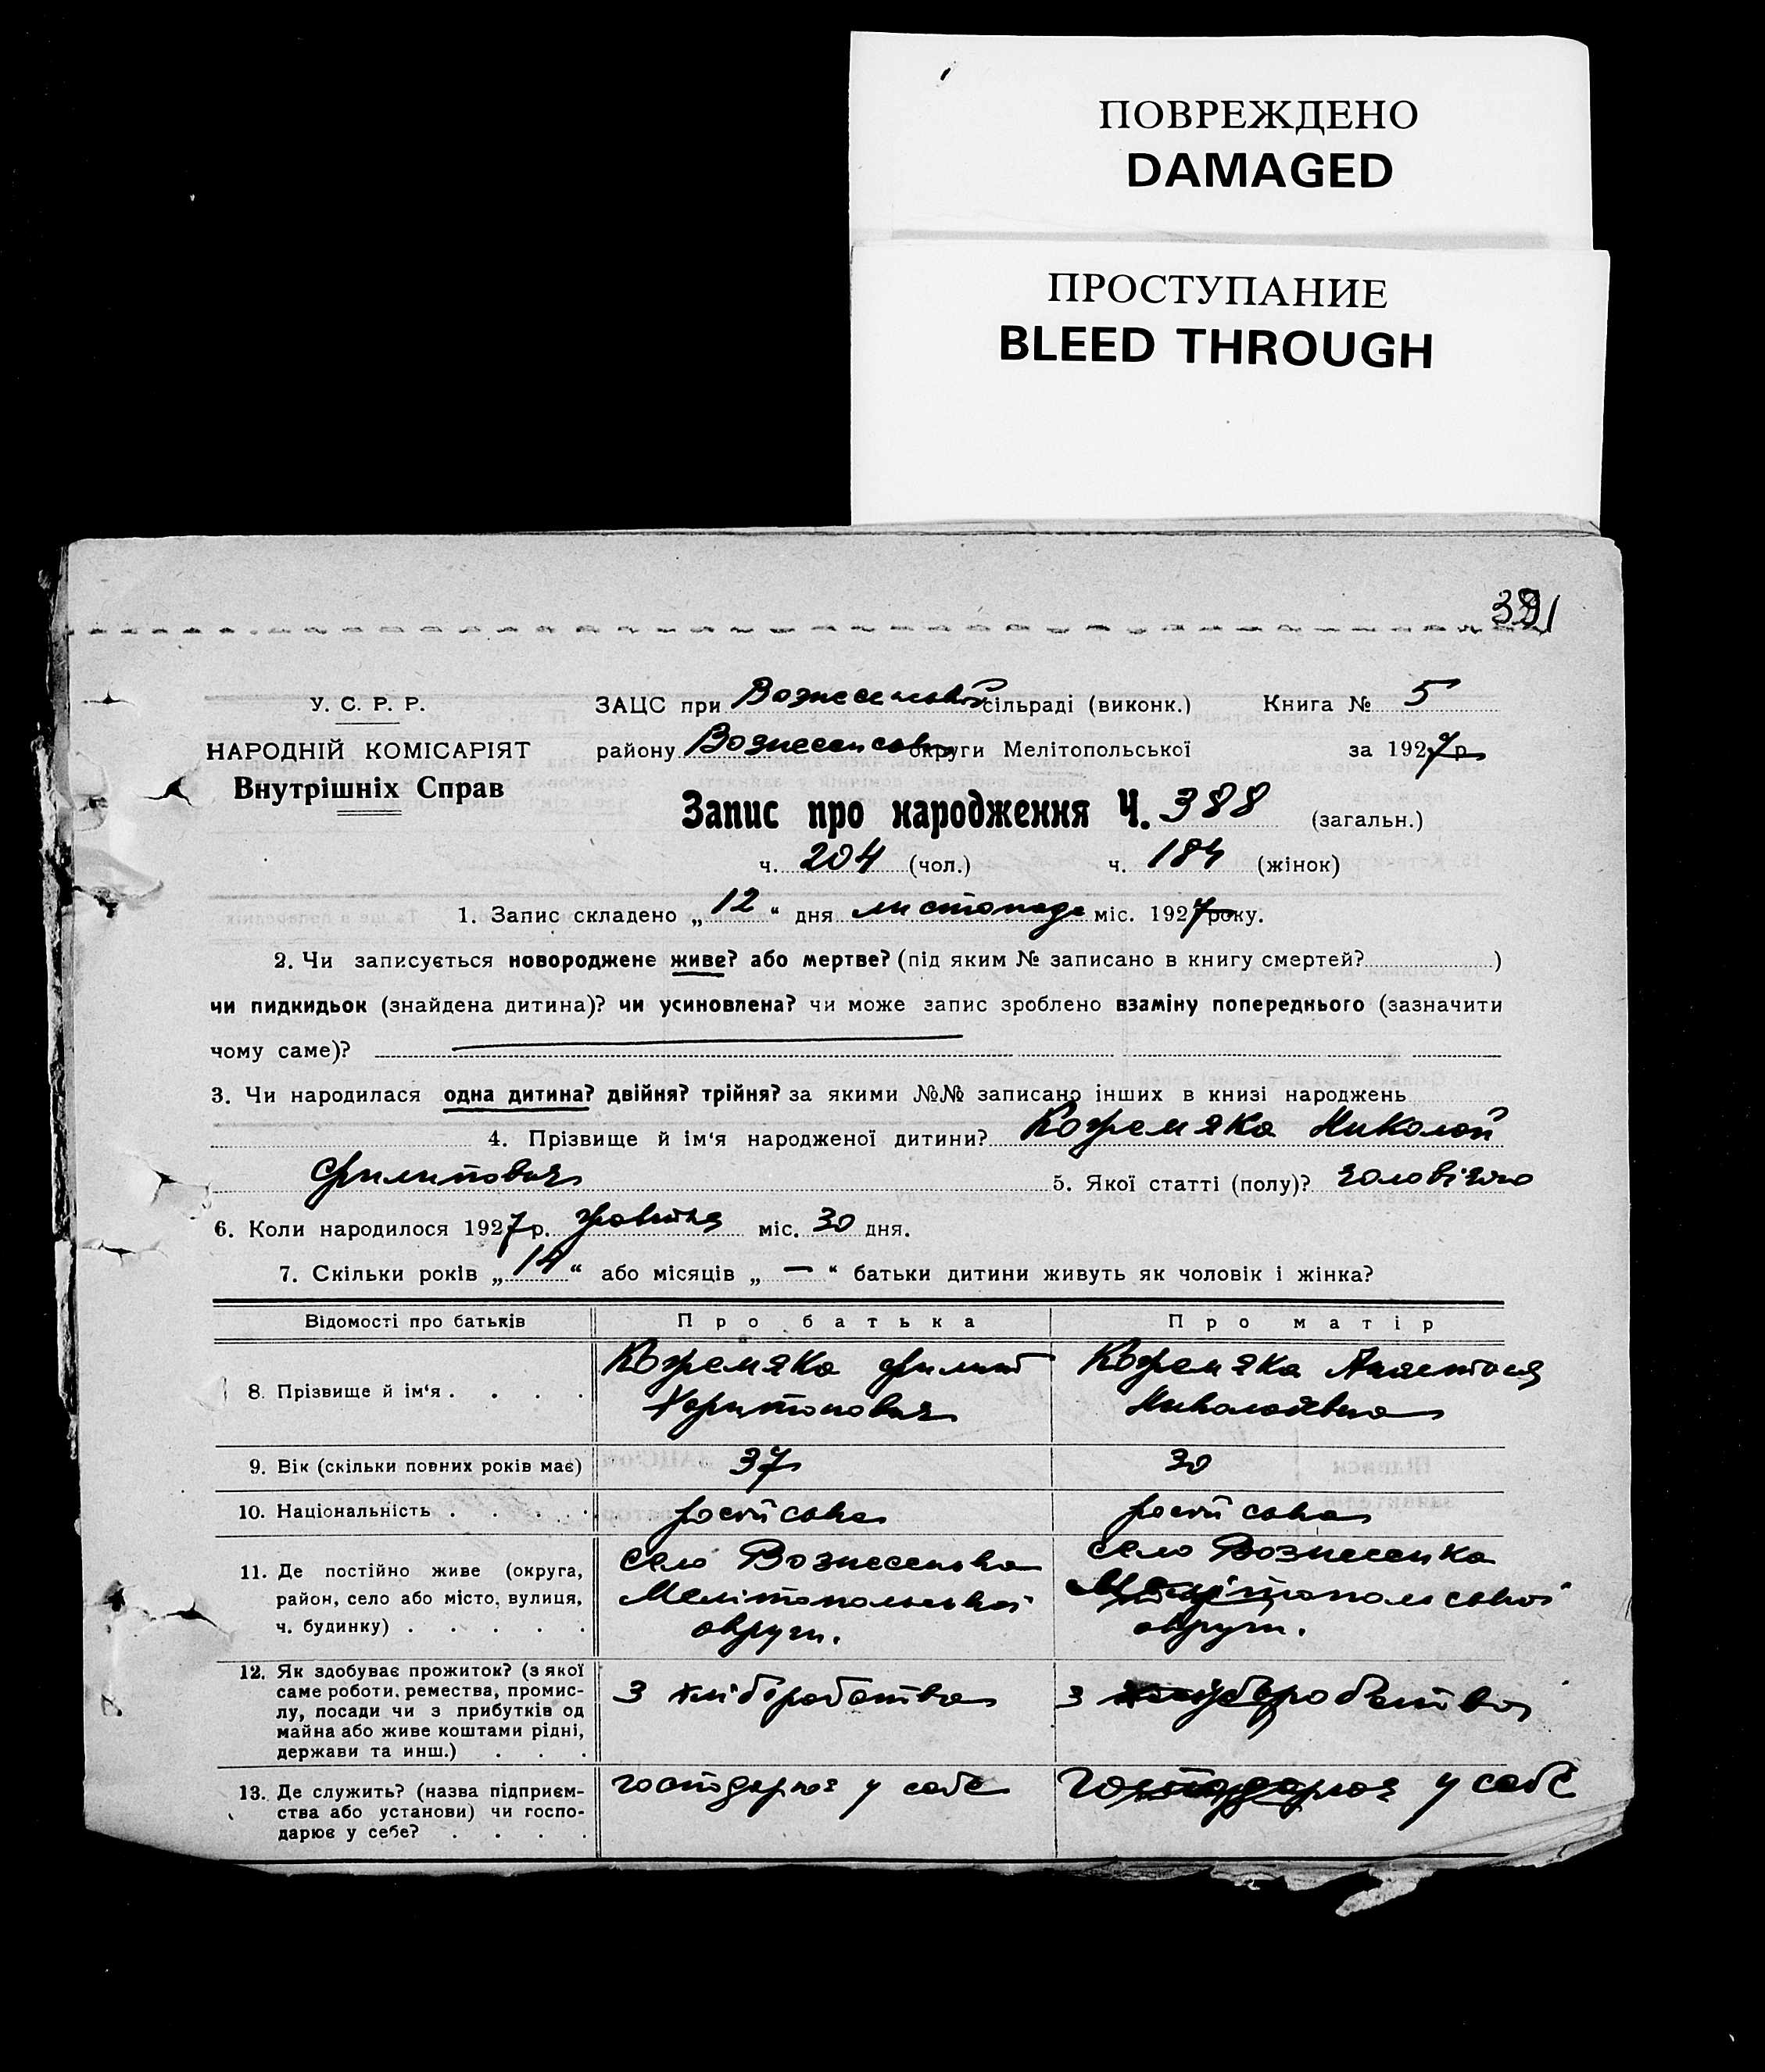 ПОВРЕЖДЕНО
DAMAGED
ПРОСТУПАНИЕ
BLEED THROUGH
У. С. Р. Р.
НАРОДНІЙ КОМІСАРІЯТ
Внутрішніх Справ
ЗАЦС при Вознесенській сільраді (виконк.) Книга № 5
району Вознесенської округи Мелітопольської за 1927 р.
Запис про народження Ч. 388 (загальн.)
ч. 204 (чол.) ч. 184 (жінок)
1. Запис складено „ 12 “ дня листопада міс. 1927 року.
2. Чи записується новороджене живе? або мертве? (під яким № записано в книгу смертей? )
чи пидкидьок (знайдена дитина)? чи усиновлена? чи може запис зроблено взаміну попереднього (зазначити
чому саме)?
3. Чи народилася одна дитина? двійня? трійня? за якими №№ записано інших в книзі народжень
4. Прізвище й ім‘я народженої дитини? Кожемяка Николай
Филипович 5. Якої статті (полу)? чоловічо
6. Коли народилося 1927 р. жовтня міс. 30 дня.
7. Скільки років „ 14 “ або місяців „ — “ батьки дитини живуть як чоловік і жінка?
Відомості про батьків Про батька Про матір
8. Прізвище й ім‘я . . . . Кожемяка Филип Кожемяка Анастасія
Харитонович Николаевна
9. Вік (скільки повних років має) 37 30
10. Національність . . . . . російська російська
11. Де постійно живе (округа, район, село або місто, вулиця, ч. будинку) . . . . . село Вознесенка село Вознесенка
Мелітопольської Мелітопольської
округи. округи.
12. Як здобуває прожиток? (з якої саме роботи, ремества, промис-
лу, посади чи з прибутків од
майна або живе коштами рідні,
держави та инш.) . . . З хліборобства з хліборобства
13. Де служить? (назва підприєм-
ства або установи) чи госпо-
дарює у себе? . . . . господарює у себе Господарює у себе